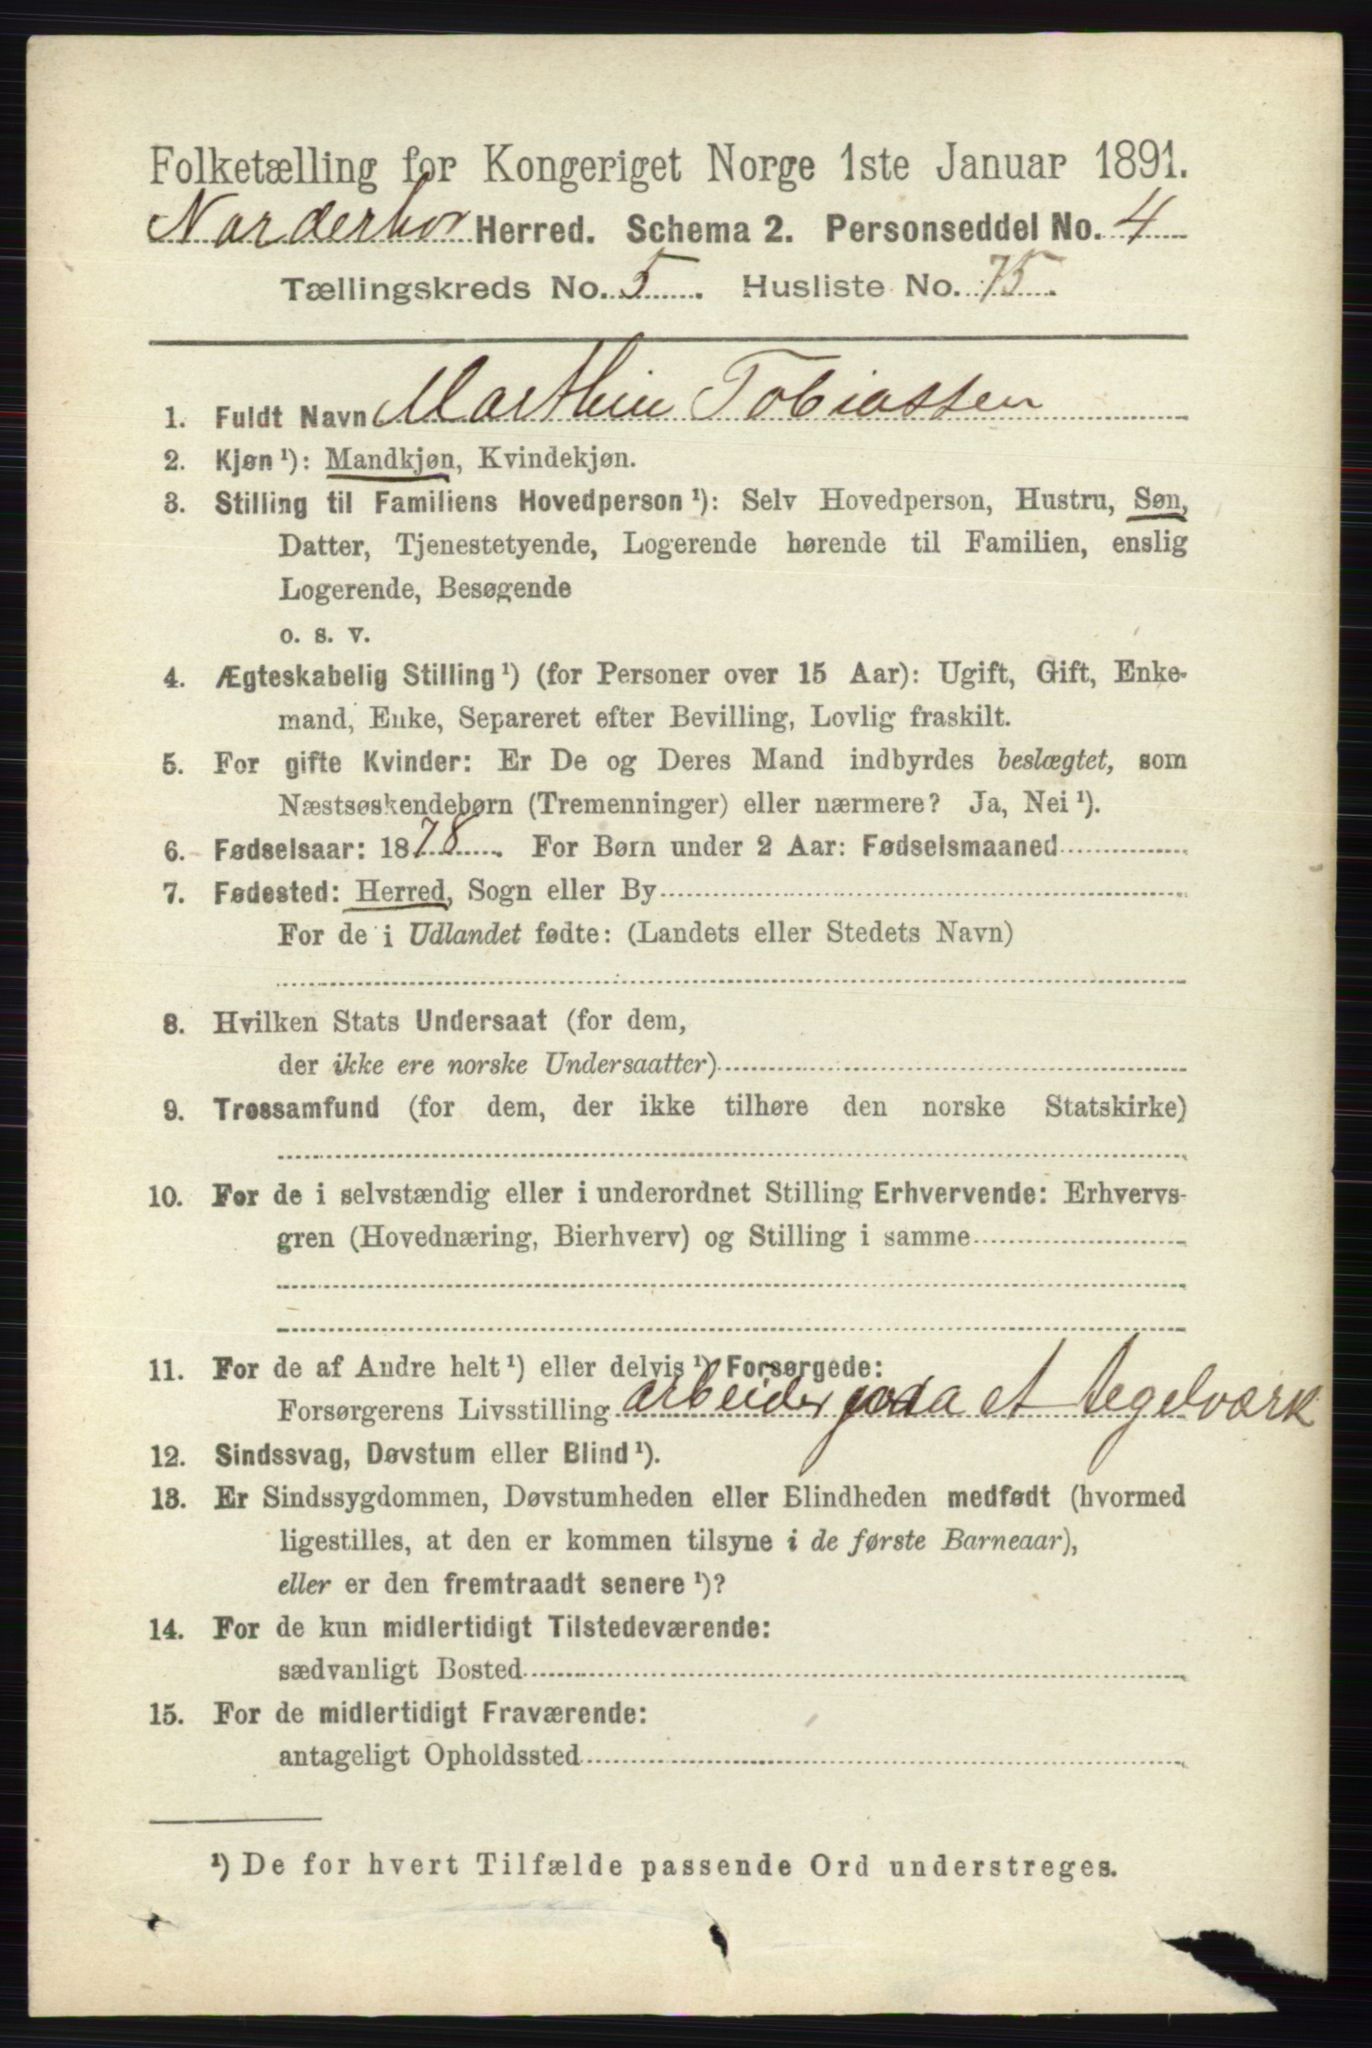 Folketælling for Kongeriget Norge 1ste Januar 1891.
Narderhov Herred. Schema 2. Personseddel No. 4
Tællingskreds No. 5. Husliste No. 75.
1. Fuldt Navn Marthin Tobiassen
2. Kjøn¹): Mandkjøn, Kvindekjøn.
3. Stilling til Familiens Hovedperson¹): Selv Hovedperson, Hustru, Søn,
Datter, Tjenestetyende, Logerende hørende til Familien, enslig
Logerende, Besøgende
o. s. v.
4. Ægteskabelig Stilling¹) (for Personer over 15 Aar): Ugift, Gift, Enke-
mand, Enke, Separeret efter Bevilling, Lovlig fraskilt.
5. For gifte Kvinder: Er De og Deres Mand indbyrdes beslægtet, som
Næstsøskendebørn (Tremenninger) eller nærmere? Ja, Nei¹).
6. Fødselsaar: 1878. For Børn under 2 Aar: Fødselsmaaned
7. Fødested: Herred, Sogn eller By
For de i Udlandet fødte: (Landets eller Stedets Navn)
8. Hvilken Stats Undersaat (for dem,
der ikke ere norske Undersaatter)
9. Trossamfund (for dem, der ikke tilhøre den norske Statskirke)
10. For de i selvstændig eller i underordnet Stilling Erhvervende: Erhvervs-
gren (Hovednæring, Bierhverv) og Stilling i samme
11. For de af Andre helt¹) eller delvis¹) Forsørgede:
Forsørgerens Livsstilling arbeider paa et tegelværk
12. Sindssvag, Døvstum eller Blind¹).
13. Er Sindssygdommen, Døvstumheden eller Blindheden medfødt (hvormed
ligestilles, at den er kommen tilsyne i de første Barneaar),
eller er den fremtraadt senere¹)?
14. For de kun midlertidigt Tilstedeværende:
sædvanligt Bosted
15. For de midlertidigt Fraværende:
antageligt Opholdssted
¹) De for hvert Tilfælde passende Ord understreges.